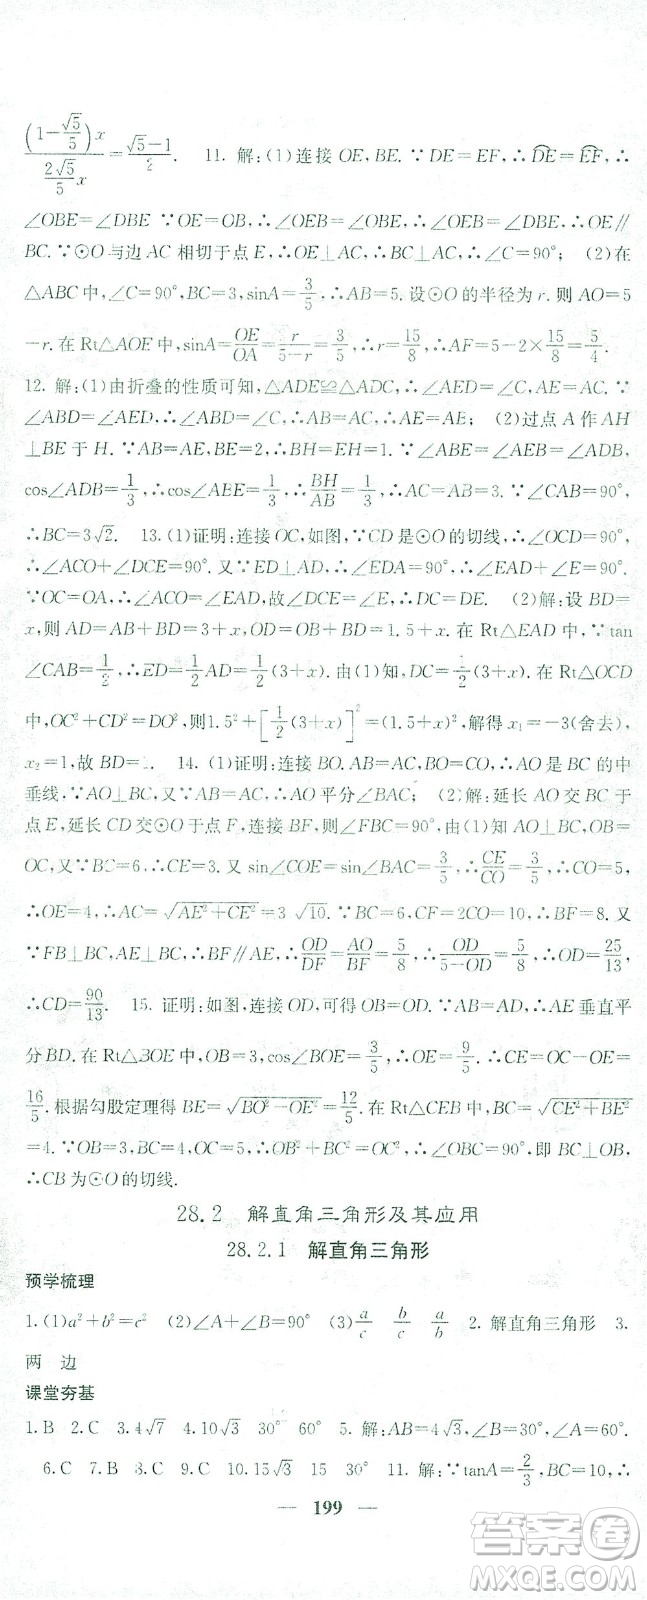 (1−√5/5)x / (2√5/5)x = (√5−1)/2. 11. 解:(1)连接 OE,BE.∵DE=EF,∴DE⌒=EF⌒,∴
∠OBE=∠DBE ∵OE=OB,∴∠OEB=∠OBE,∴∠OEB=∠DBE,∴OE∥
BC.∵⊙O与边 AC 相切于点 E,∴OE⊥AC,∴BC⊥AC,∴∠C=90°; (2)在
△ABC 中,∠C=90°,BC=3,sinA=3/5,∴AB=5.设⊙O的半径为 r.则 AO=5
−r.在 Rt△AOE 中,sinA=OE/OA=r/(5−r)=3/5,∴r=15/8,∴AF=5−2×15/8=5/4.
12. 解:(1)由折叠的性质可知,△ADE≌△ADC,∴∠AED=∠C.∵
∠ABD=∠AED,∴∠ABD=∠C,∴AB=AC; (2)过点 A 作 AH
⊥BE 于 H.∵AB=AE,BE=2,∴BH=EH=1.∵∠ABE=∠ADB,
cos∠ADB=1/3,∴cos∠ABE=1/3,∴BH/AB=1/3,∴AC=AB=3.∵∠CAB=90°,
∴BC=3√2. 13. (1)证明:连接 OC,如图,∵CD 是⊙O 的切线,∴∠OCD=90°,
∴∠ACO+∠DCE=90°.又∵ED⊥AD,∴∠EDA=90°,∴∠EAD+∠E=90°.
∵OC=OA,∴∠ACO=∠EAD,故∠DCE=∠E. (2)解:设 BD=
x,则 AD=AB+BD=3+x,OD=OB+BD=1.5+x.在 Rt△EAD 中,∵tan
∠CAB=1/2,∴ED=1/2AD=1/2(3+x).由(1)知,DC=1/2(3+x).在 Rt△OCD
中,OC²+CD²=DO²,则1.5²+[1/2(3+x)]²=(1.5+x)²,解得 x₁=−3(舍去),
x₂=1,故 BD=1. 14. (1)证明:连接 BO.AB=AC,BO=CO,∴AO 是 BC 的中
垂线,∵AO⊥BC,AB=AC,∴AO 平分∠BAC; (2)解:延长 AO 交 BC 于
点E,延长 CD 交⊙O 于点 F,连接 BF,则∠FBC=90°.由(1)知AO⊥BC,OB=
OC,又∵BC=6,∴CE=3.又∵sin∠COE=sin∠BAC=3/5,∴CE/CO=3/5,∴CO=5,
∴OE=4,∴AC=√(AE²+CE²)=3√10.∵BC=6,CF=2CO=10,∴BF=8.又
∵FB⊥BC,AE⊥BC,∴BF∥AE,∴OD/DF=AO/BF=5/8,∴OD/(5−OD)=5/8,∴OD=25/13,
∴CD=90/13. 15. 证明:如图,连接 OD,可得 OB=OD.∵AB=AD,∴AE 垂直平
分BD.在 Rt△BOE 中,OB=3,cos∠BOE=3/5,∴OE=9/5,∴CE=OC−OE=
16/5.根据勾股定理得 BE=√(BO²−OE²)=12/5.在 Rt△CEB 中,BC=√(CE²+BE²)
=4.∵OB=3,BC=4,OC=5,∴OB²+BC²=OC²,∴∠OBC=90°,即 BC⊥OB,
∴CB 为⊙O 的切线.
28.2 解直角三角形及其应用
28.2.1 解直角三角形
预学梳理
1.(1)a²+b²=c² (2)∠A+∠B=90° (3)a/c b/c a/b 2. 解直角三角形 3.
两 边
课堂夯基
1.B 2.C 3.4√7 4.10√3 30° 60° 5. 解:AB=4√3,∠B=30°,∠A=60°.
6.C 7.B 8.C 9.C 10.15√3 15 30° 11. 解:∵tanA=2/3,BC=10,∴
— 199 —
答案圈
MXQE.COM